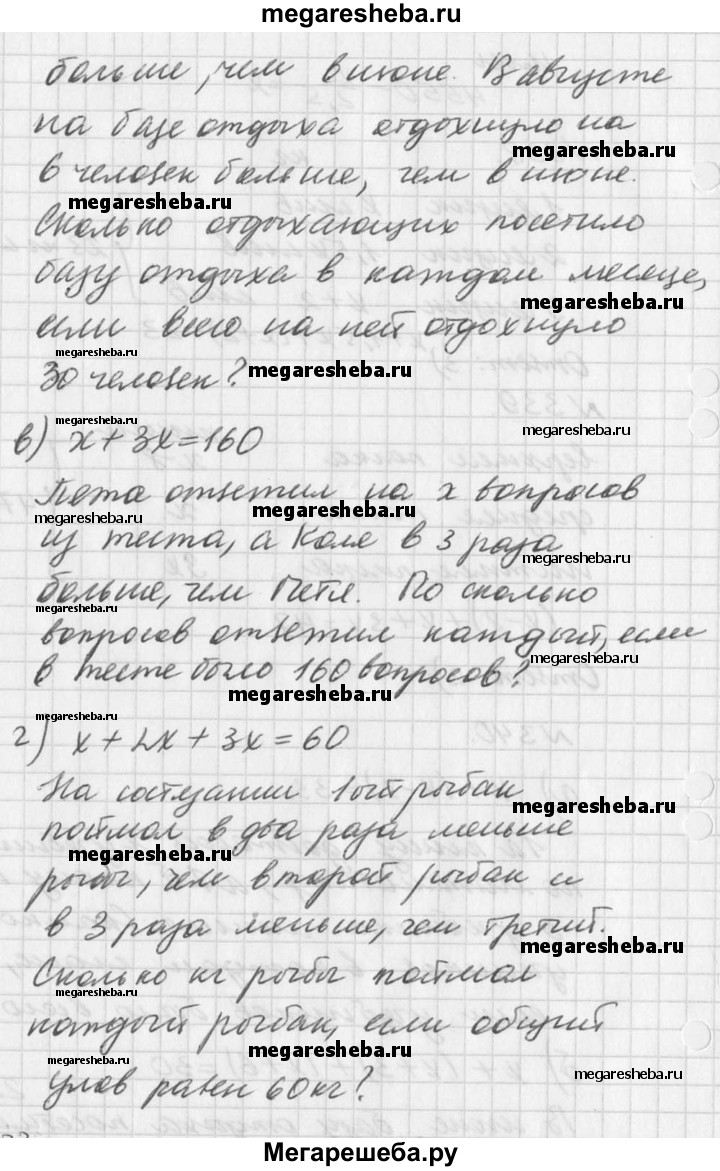 megaresheba.ru
больше, чем в июне. В августе
на базе отдыха отдохнуло на
megaresheba.ru
6 человек больше, чем в июне.
megaresheba.ru
megaresheba.ru
Сколько отдыхающих посетило
базу отдыха в каждом месяце,
megaresheba.ru
если всего на ней отдохнуло
megaresheba.ru
30 человек?
megaresheba.ru
megaresheba.ru
megaresheba.ru
в) x + 3x = 160
Петя ответил на x вопросов
megaresheba.ru
megaresheba.ru
из теста, а Коля в 3 раза
больше, чем Петя. По сколько
megaresheba.ru
вопросов ответил каждый, если
megaresheba.ru
в тесте было 160 вопросов?
megaresheba.ru
megaresheba.ru
г) x + 2x + 3x = 60
На состязании 1ый рыбак
megaresheba.ru
поймал в два раза меньше
megaresheba.ru
рыбы, чем второй рыбак и
в 3 раза меньше, чем третий.
megaresheba.ru
Сколько кг рыбы поймал
megaresheba.ru
каждый рыбак, если общий
megaresheba.ru
megaresheba.ru
улов равен 60 кг?
megaresheba.ru
Мегарешеба.ру